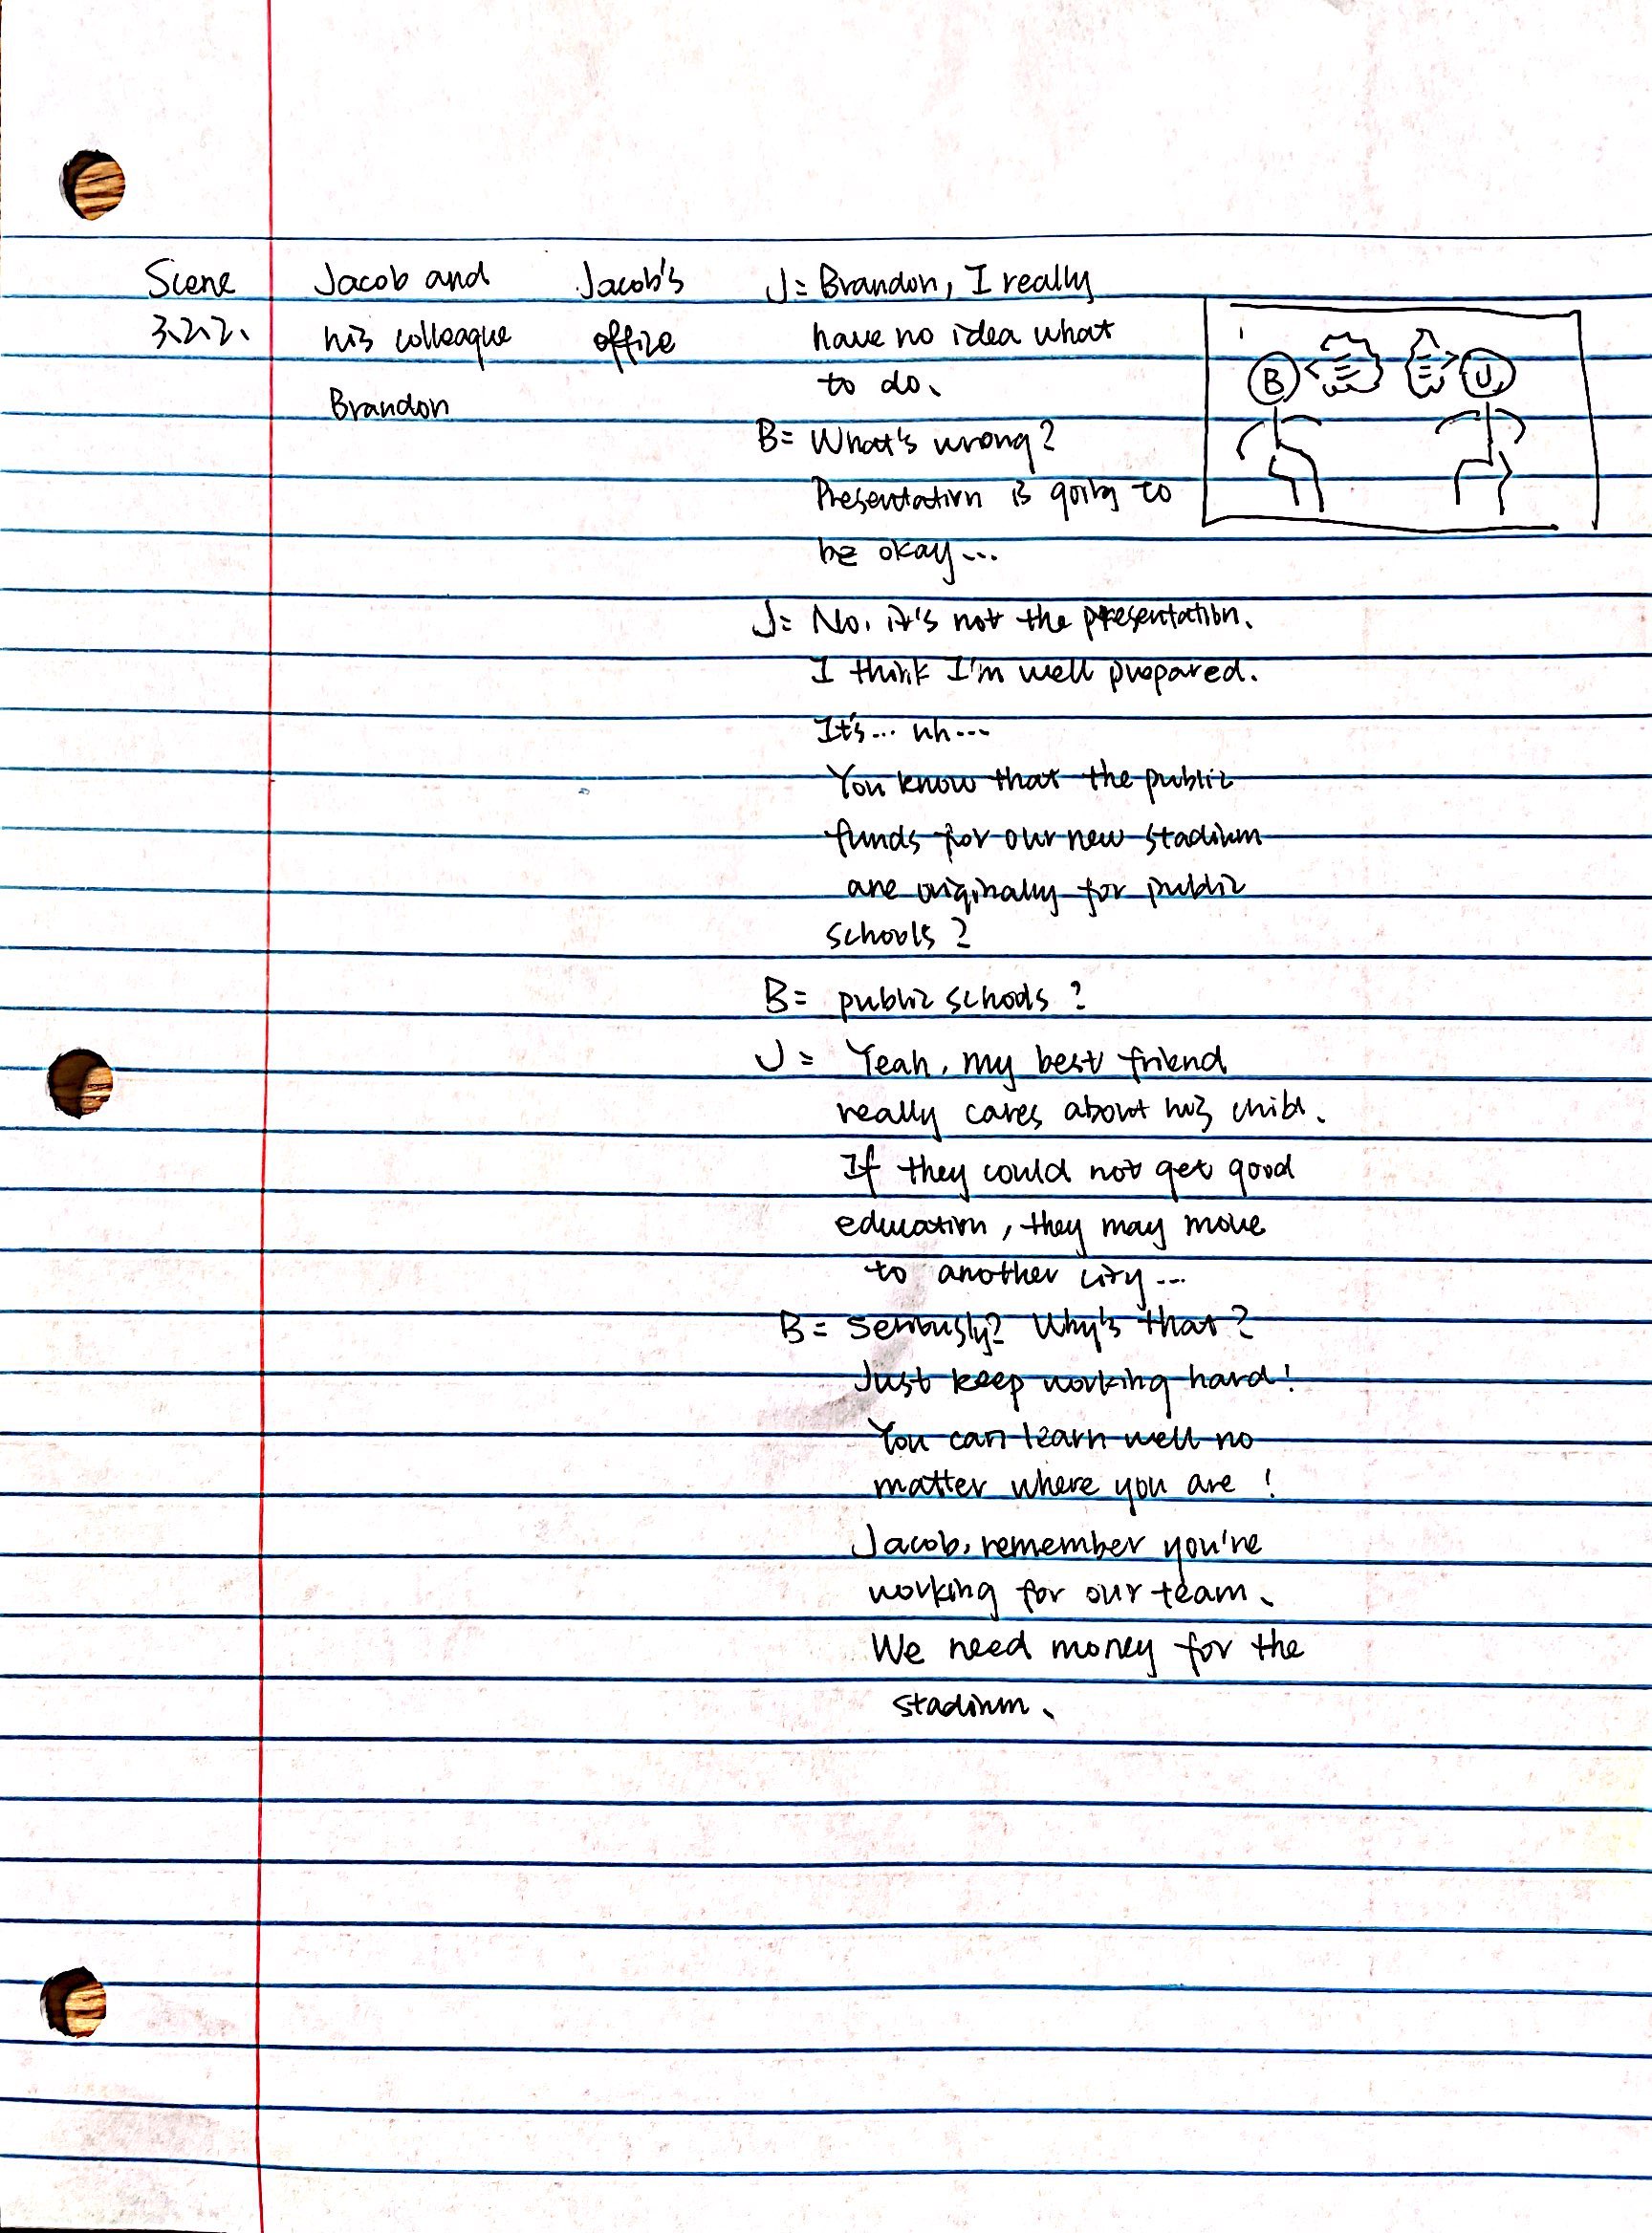 Scene
3.2.2.
Jacob and
his colleague
Brandon
Jacob's
office
J= Brandon, I really
have no idea what
to do.
B= What's wrong?
Presentation is going to
be okay...
J= No, it's not the presentation.
I think I'm well prepared.
It's... uh...
You know that the public
funds for our new stadium
are originally for public
schools?
B= public schools?
J= Yeah, my best friend
really cares about his child.
If they could not get good
education, they may move
to another city...
B= Seriously? Why's that?
Just keep working hard!
You can learn well no
matter where you are!
Jacob, remember you're
working for our team.
We need money for the
stadium.
B
J